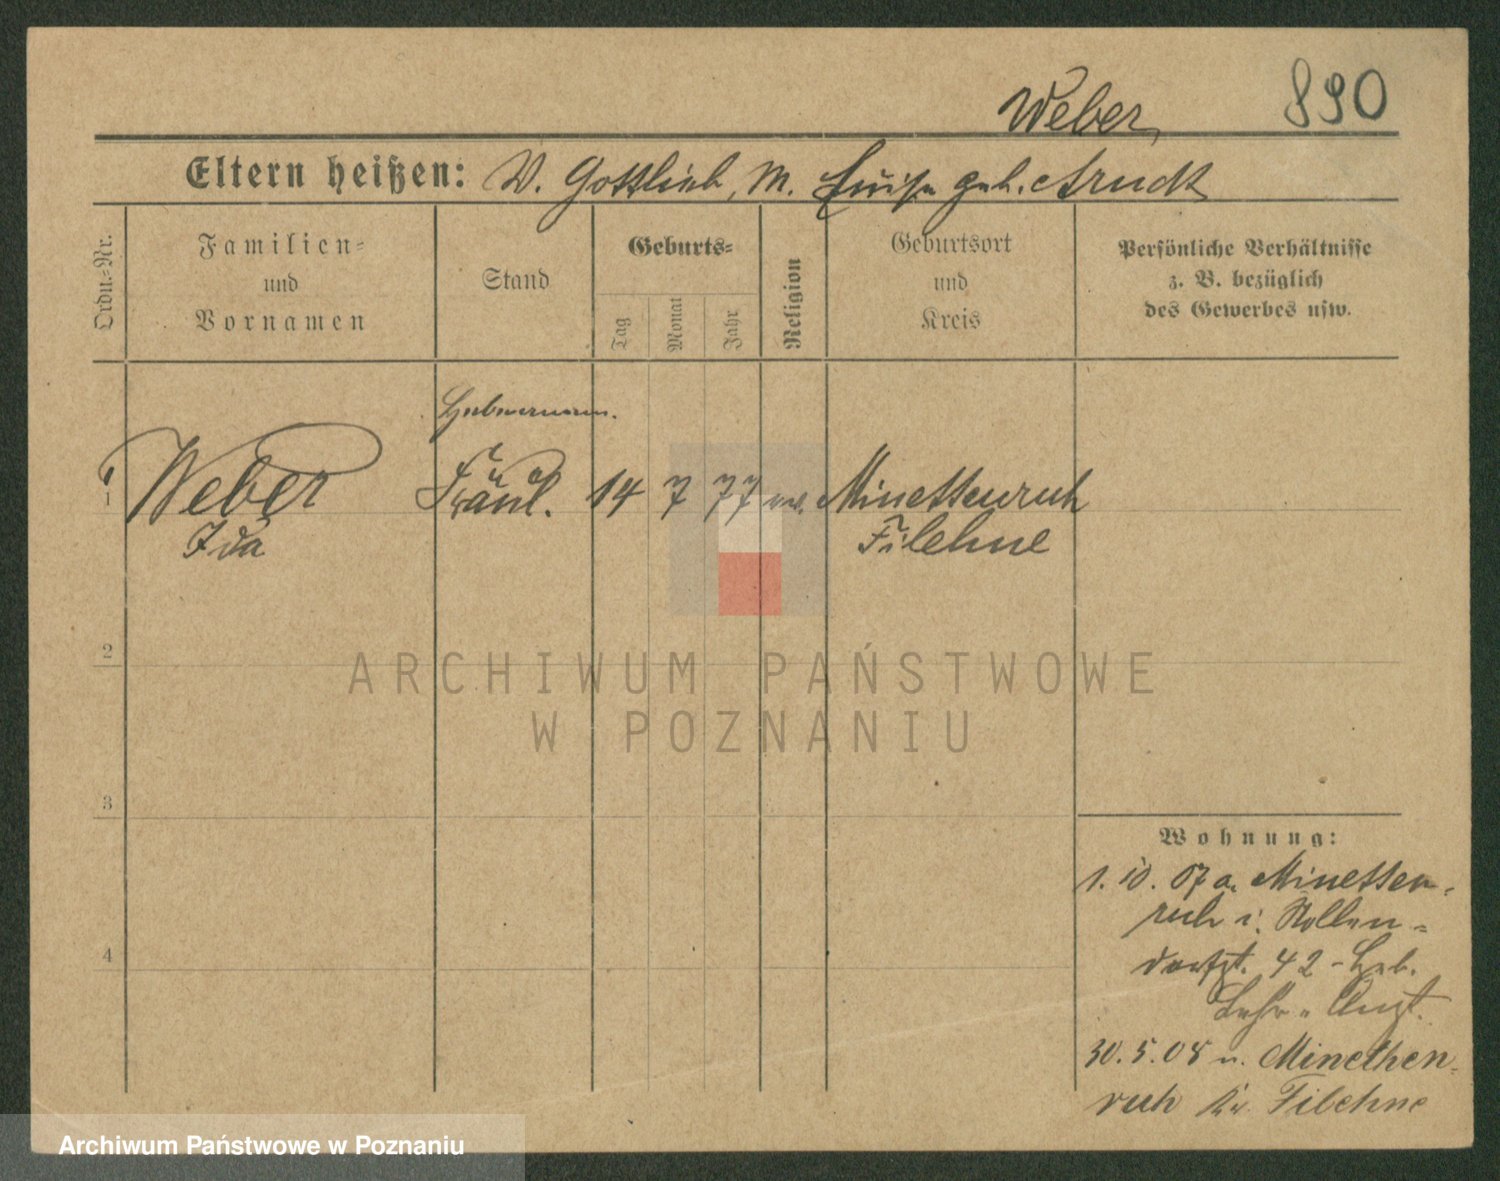 Weber, 890
Eltern heißen: V. Gottlieb, M. Luise geb. Arndt
Ordn.-Nr.
Familien-
und
Vornamen
Stand
Geburts-
Tag
Monat
Jahr
Religion
Geburtsort
und
Kreis
Persönliche Verhältnisse
z. B. bezüglich
des Gewerbes usw.
Hebamme.
1 Weber Fräul. 14 7 77 ev. Minettenruh
Ida Filehne
2
3
4
ARCHIWUM PAŃSTWOWE
W POZNANIU
Wohnung:
1. 10. 07 a. Minetten-
ruh i. Nollen-
dorfst. 42 - Heb.
Lehr- Anst.
30. 5. 08 n. Minethen-
ruh Kr. Filehne
Archiwum Państwowe w Poznaniu